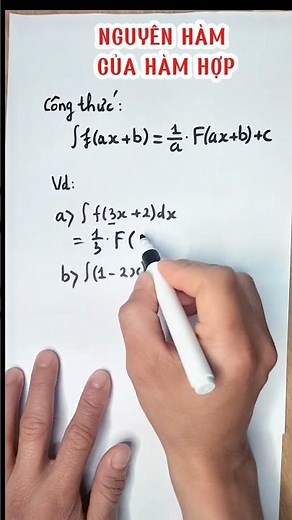 NGUYÊN HÀM
CỦA HÀM HỢP
Công thức:
∫f(ax+b) = 1/a · F(ax+b)+c
Vd:
a> ∫f(3x+2)dx
= 1/3 · F(
b> ∫(1-2x